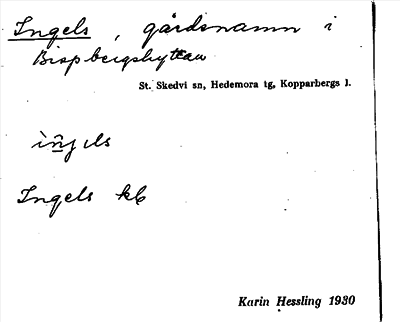 Ingels, gårdsnamn i
Bispbergshyttan
St. Skedvi sn, Hedemora tg, Kopparbergs l.
Ingels kb
Karin Hessling 1930